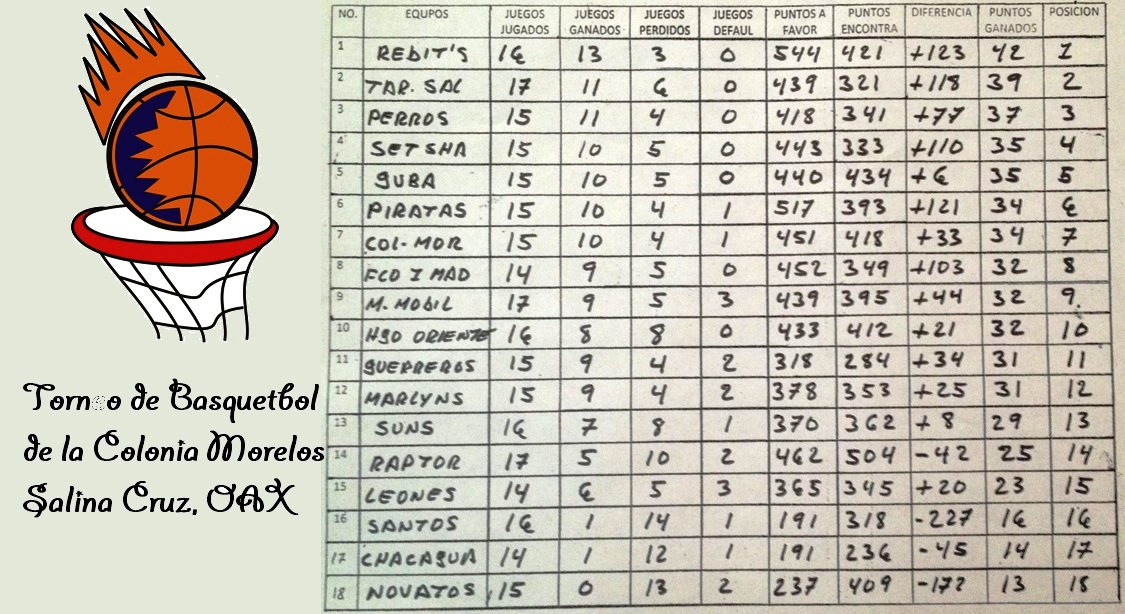 NO. EQUIPOS JUEGOS JUGADOS JUEGOS GANADOS JUEGOS PERDIDOS JUEGOS DEFAUL PUNTOS A FAVOR PUNTOS ENCONTRA DIFERENCIA PUNTOS GANADOS POSICION
1 REBIT'S 16 13 3 0 544 421 +123 42 1
2 TAR. SAL 17 11 6 0 439 321 +118 39 2
3 PERROS 15 11 4 0 418 341 +77 37 3
4 SETSHA 15 10 5 0 443 333 +110 35 4
5 GUBA 15 10 5 0 440 434 +6 35 5
6 PIRATAS 15 10 4 1 517 393 +121 34 6
7 COL-MOR 15 10 4 1 451 418 +33 34 7
8 FCO I MAD 14 9 5 0 452 349 +103 32 8
9 M. MOBIL 17 9 5 3 439 395 +44 32 9.
10 HGO ORIENTE 16 8 8 0 433 412 +21 32 10
11 GUERREROS 15 9 4 2 318 284 +34 31 11
12 MARLYNS 15 9 4 2 378 353 +25 31 12
13 SUNS 16 7 8 1 370 362 +8 29 13
14 RAPTOR 17 5 10 2 462 504 -42 25 14
15 LEONES 14 6 5 3 365 345 +20 23 15
16 SANTOS 16 1 14 1 191 318 -227 16 16
17 CHACAGUA 14 1 12 1 191 236 -45 14 17
18 NOVATOS 15 0 13 2 237 409 -172 13 18
Torneo de Basquetbol
de la Colonia Morelos
Salina Cruz, OAX